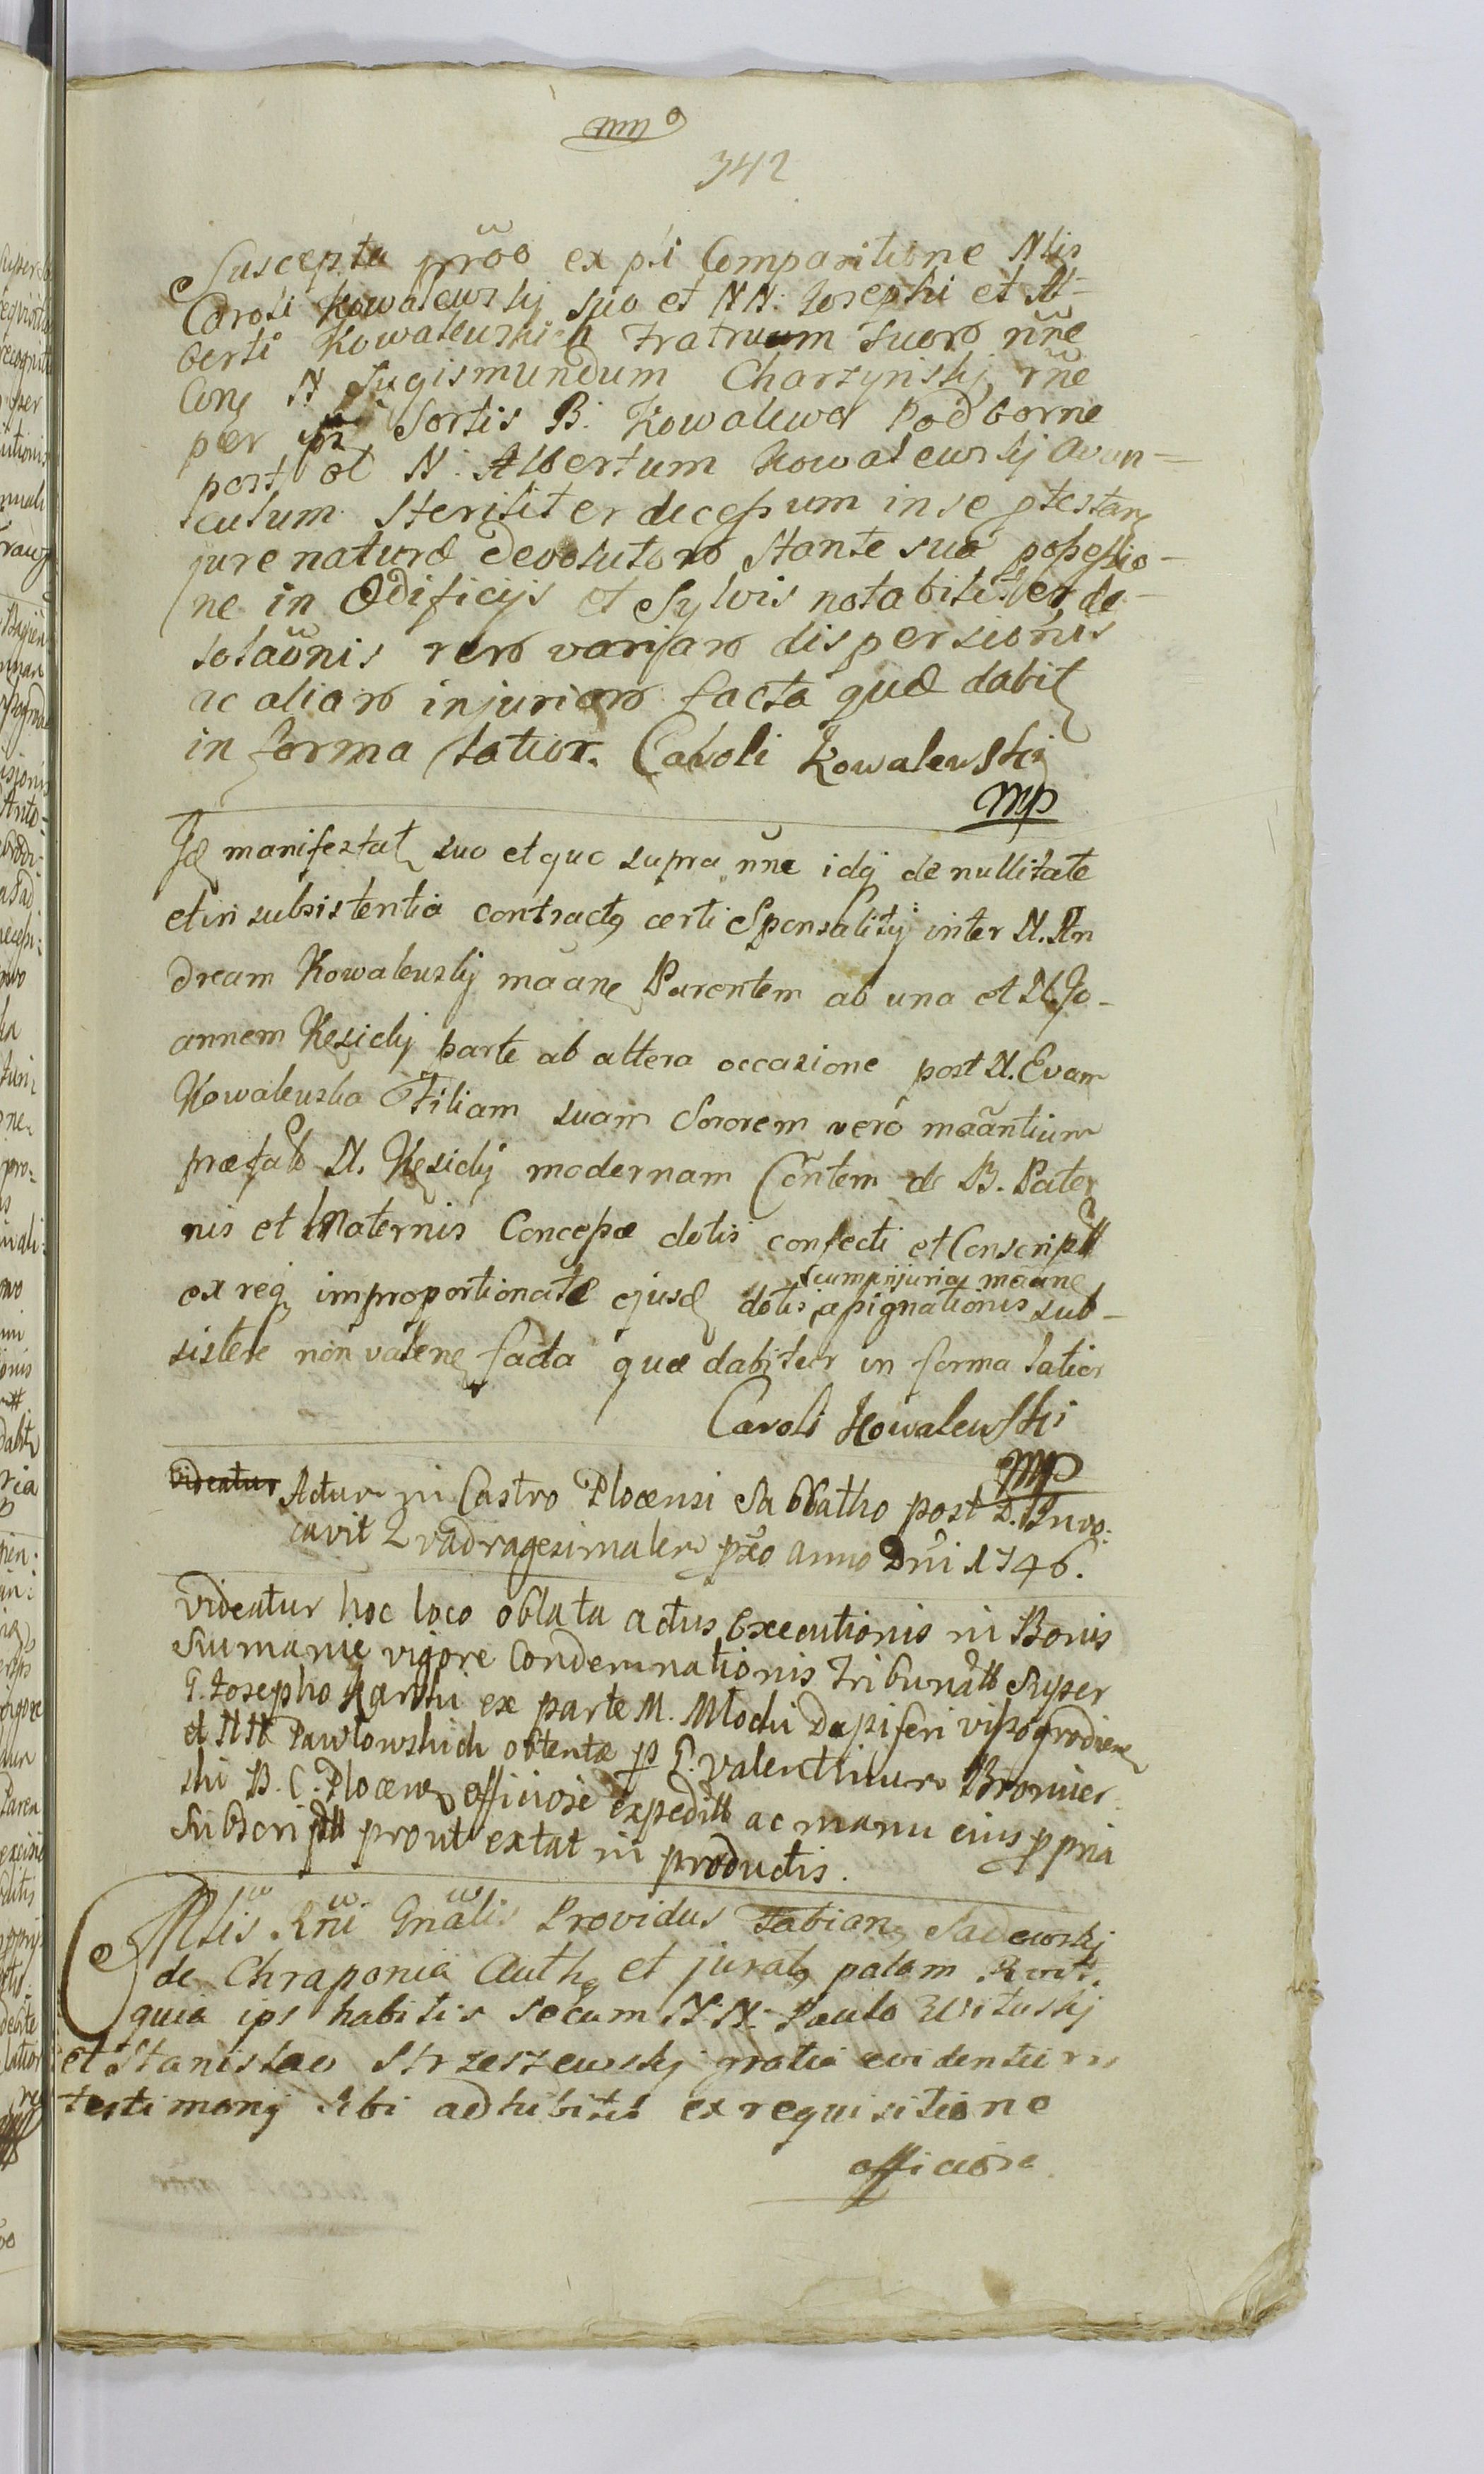 342
Suscepta prõõ ex pti Comparitione Nlis
Caroli Kowalewskÿ suo et NN. Josephi et Al-
berti Kowalewskich Fratruum suoro nñe
Cons N Sugismundum Charzynskÿ rñe
per Sortis B. Kowalewo Podborne
post ol N. Albertum Kowalewskÿ avun-
culum steriliter decessum in se
jure naturæ devolutoro stante sua possessio-
ne in Ædificÿs et Sylvis notabiliter de-
solaõnis rero varÿaro dispersionis
ac aliaro injuriaro facta quæ dabit
in forma latior. Caroli Kowalewski
mp
Id manifestat suo et quo supra nñe idq de nullitate
et in subsistentia contractus certi Sponsalitÿ inter N. An
dream Kowalewskÿ mãane Parentem ab una et N. Jo-
annem Kęsickÿ parte ab altera occasione post N. Evam
Kowalewska Filiam suam Sororem verò mãantium
præfato N. Kęsickÿ modernam Cõntem de B. Pater
nis et Maternis Concessæ dotis confecti et Conscriptt
ex req improportionatæ ejusd dotis assignationis sub-
cum injuria mãane
sistere non valene facta quæ dabitur in forma latior
Caroli Kowalewski
mp
videatur Actum in Castro Plocensi Sabbatho post D. Invo-
cavit Quadragesimalem pxo Anno Dñi 1746.
videatur hoc loco oblata actus Executionis in Bonis
Rumanie vigore Condemnationis Tribunaltt Super
G. Josepho Karski ex parte M. Mlocki Dapiferi vissogrodiene
et NN Pawlowskich obtentæ p G. Valentinum Bromier
ski B. C. Plocens officiose expeditt ac manu eius ppria
Subscriptt prout extat in productis.
Mlis Rñi Gnãlis Providus Fabians Sadowskÿ
de Chraponia Auths et jurats palam
quia ips habitis secum NN. Paulo Wituskÿ
et Stanislao Strzeszewskÿ gratia evidentium
testimonÿ sibi adhibitis ex requisitione
officiosa